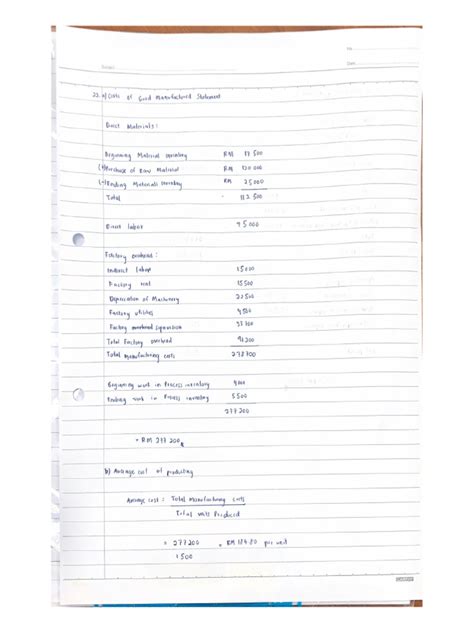 No.
Date
Subject
23. a) Costs of Good Manufactured Statement
Direct Materials:
Beginning Material inventory RM 17 500
(+) Purchase of Raw Material RM 120 000
(-) Ending Materials inventory RM 25 000
Total 112 500
Direct labor 75 000
Factory overhead:
Indirect labor 15 000
Factory rent 15 500
Depreciation of Machinery 22 500
Factory utilities
Factory overhead supervision
Total Factory overhead 91 200
Total manufacturing costs 278 700
Beginning work in Process inventory 4 000
Ending work in Process inventory 5 500
277 200
= RM 277 200
b) Average cost of producing
Average cost: Total Manufacturing costs
Total units Produced
= 277 200 = RM 184.80 per unit
1 500